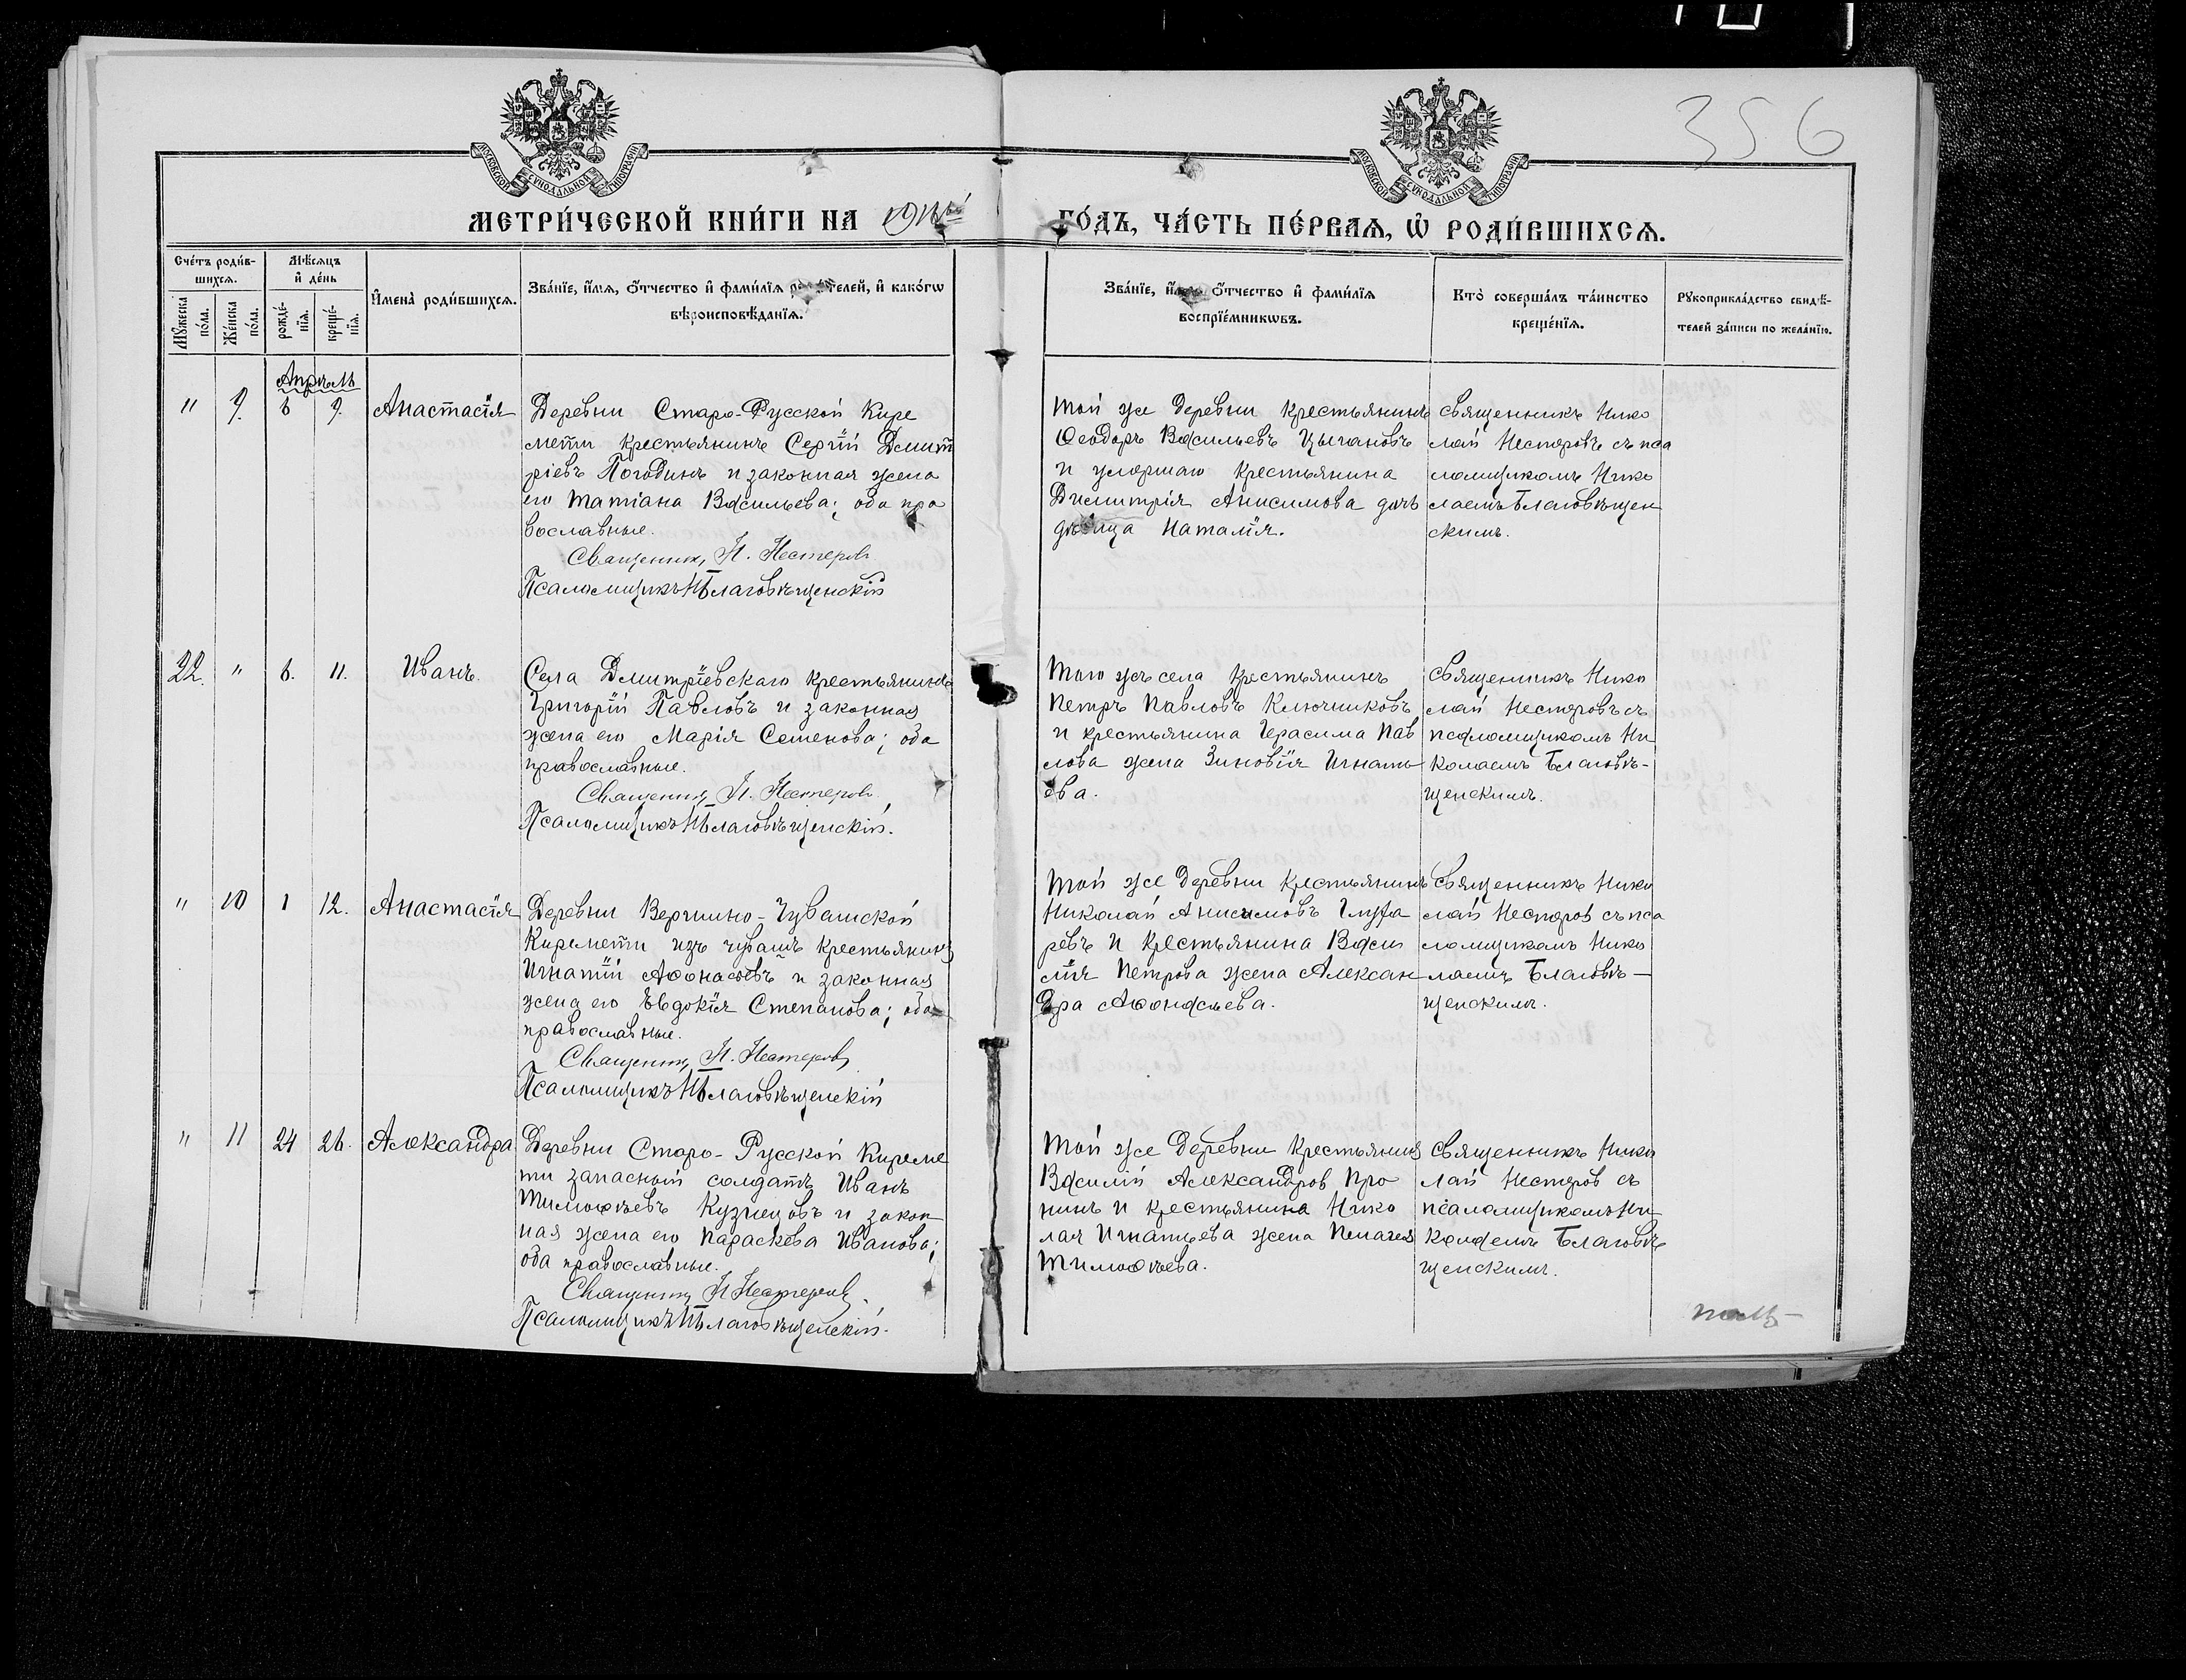 356
МОСКОВСКОЙ СѴНОДАЛЬНОЙ ТИПОГРАФІИ
МОСКОВСКОЙ СѴНОДАЛЬНОЙ ТИПОГРАФІИ
МЕТРИ́ЧЕСКОЙ КНИ́ГИ НА
ГО́ДЪ, ЧА́СТЬ ПЕ́РВАѦ, Ѿ РОДИ́ВШИХСѦ.
Сче́тъ роди́в-
шихсѧ.
Мѣ́сѧцъ
и҆ де́нь
Мꙋ́жеска по́ла.
Же́нска по́ла.
рожде́-
нїѧ.
креще́-
нїѧ.
И҆мена̀ роди́вшихсѧ.
Зва́нїе, и҆́мѧ, ѻ҆́тчество и҆ фами́лїѧ роди́телей, и҆ како́гѡ
вѣроисповѣ́данїѧ.
Зва́нїе, и҆́мѧ, ѻ҆́тчество и҆ фами́лїѧ
воспрїе́мникѡвъ.
Кто̀ соверша́лъ та́инство
креще́нїѧ.
Рꙋкоприкла́дство свидѣ́-
телей за́писи по жела́нїю.
Апрѣль
" 9. 6 9. Анастасія
Деревни Старо-Русской Кире
мети крестьянинъ Сергій Дмит
ріевъ Погодинъ и законная жена
его Татіана Васильева; оба пра
вославные.
Священникъ Н. Нестеровъ
Псаломщикъ Н Благовѣщенскій
Той же деревни крестьянинъ
Ѳеодоръ Васильевъ Цыгановъ
и умершаго крестьянина
Димитрія Анисимова дочь
дѣвица Наталія.
Священникъ Нико
лай Нестеровъ съ пса
ломщикомъ Нико
лаемъ Благовѣщен
скимъ.
22. " 6. 11. Иванъ.
Села Дмитріевскаго крестьянинъ
Григорій Павловъ и законная
жена его Марія Семенова; оба
православные.
Священникъ Н. Нестеровъ
Псаломщикъ Н Благовѣщенскій.
Того же села крестьянинъ
Петръ Павловъ Ключниковъ
и крестьянина Герасима Пав
лова жена Зиновія Игнать
ева.
Священникъ Нико
лай Нестеровъ съ
псаломщикомъ Ни
колаемъ Благовѣ-
щенскимъ.
" 10 1 12. Анастасія
Деревни Вершино-Чувашской
Киремети изъ чувашъ крестьянинъ
Игнатій Аѳонасьевъ и законная
жена его Евдокія Степанова; оба
православные.
Священникъ Н. Нестеровъ
Псаломщикъ Н Благовѣщенскій
Той же деревни крестьянинъ
Николай Анисимовъ
и крестьянина Васи
лія Петрова жена Алексан
дра Аѳонасьева.
Священникъ Нико
лай Нестеров съ пса
ломщикомъ Нико
лаемъ Благовѣ-
щенскимъ.
" 11 24 26. Александра
Деревни Старо-Русской Киреме
ти запасный солдатъ Иванъ
Тимоѳѣевъ Кузнецовъ и закон
ная жена его Параскева Иванова;
оба православные.
Священникъ Н Нестеровъ.
Псаломщикъ Н Благовѣщенскій.
Той же деревни крестьянинъ
Василій Александров Про
нинъ и крестьянина Нико
лая Игнатьева жена Пелагея
Тимоѳѣева.
Священникъ Нико
лай Нестеров съ
псаломщикомъ Ни
колаемъ Благовѣ
щенскимъ.